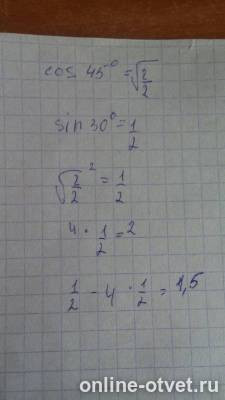 cos 45° = √2/2
sin 30° = 1/2
√2/2 ² = 1/2
4 · 1/2 = 2
1/2 - 4 · 1/2 = 1,5
online-otvet.ru